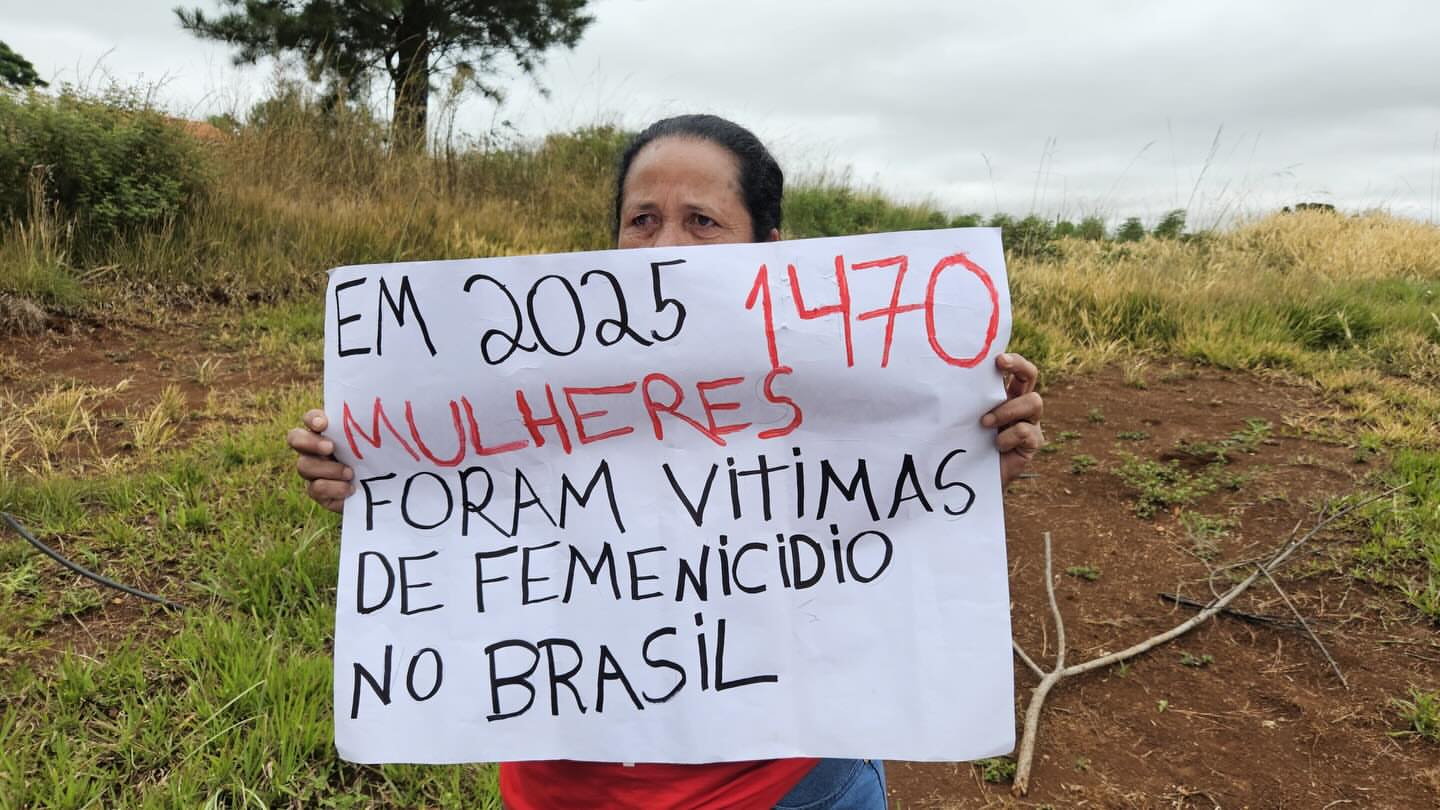 EM 2025 1470
MULHERES
FORAM VITIMAS
DE FEMENICIDIO
NO BRASIL